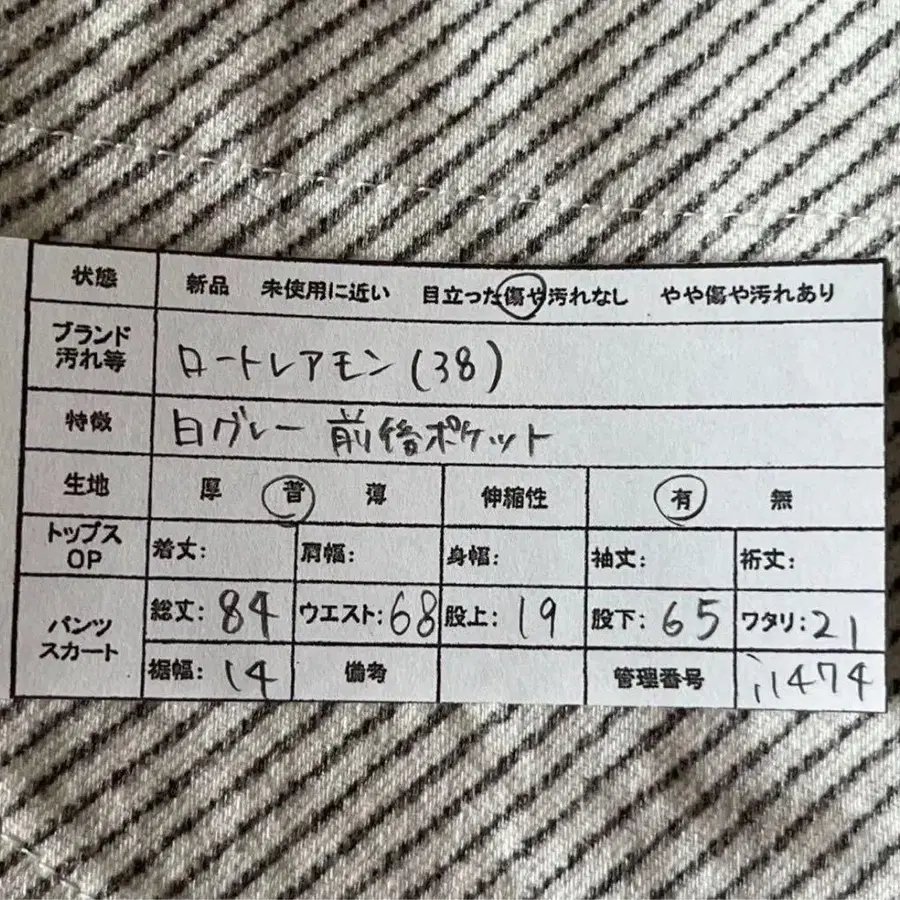 状態 新品 未使用に近い 目立った傷や汚れなし やや傷や汚れあり
ブランド
汚れ等 ロートレアモン(38)
特徴 白グレー 前後ポケット
生地 厚 普 薄 伸縮性 有 無
トップス
OP 着丈: 肩幅: 身幅: 袖丈: 裄丈:
パンツ
スカート 総丈:84 ウエスト:68 股上:19 股下:65 ワタリ:21
裾幅:14 備考 管理番号 い1474